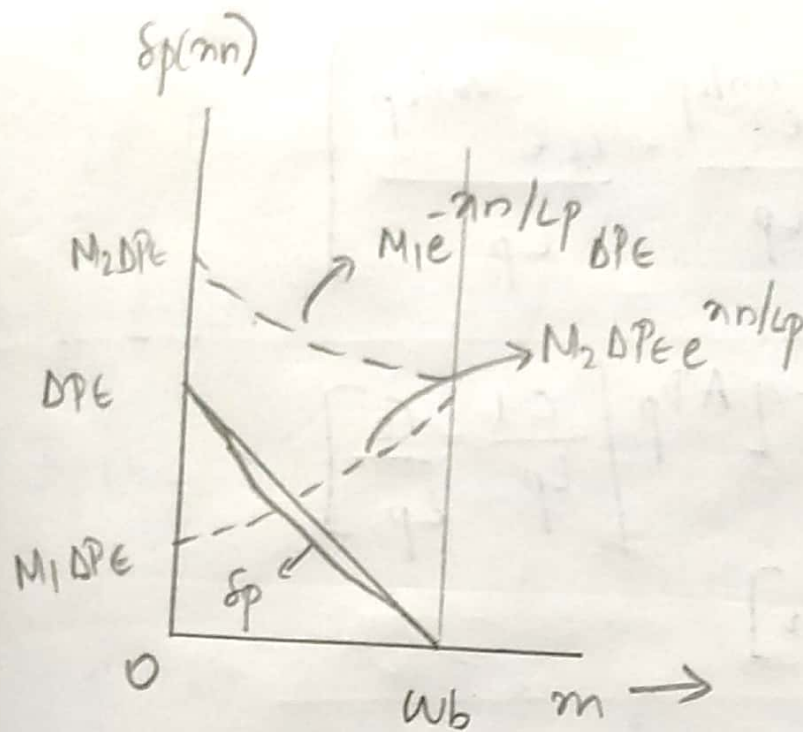 δp(xn)
M2ΔPE
M1e^-xn/Lp ΔPE
M2ΔPE e^xn/Lp
ΔPE
M1ΔPE
δp
O
Wb
xn →